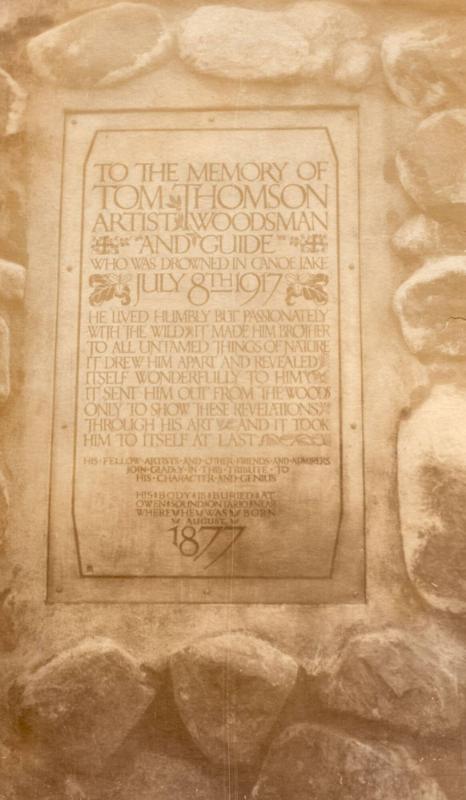 TO THE MEMORY OF
TOM THOMSON
ARTIST WOODSMAN
AND GUIDE
WHO WAS DROWNED IN CANOE LAKE
JULY 8TH 1917
HE LIVED HUMBLY BUT PASSIONATELY
WITH THE WILD IT MADE HIM BROTHER
TO ALL UNTAMED THINGS OF NATURE
IT DREW HIM APART AND REVEALED
ITSELF WONDERFULLY TO HIM
IT SENT HIM OUT FROM THE WOODS
ONLY TO SHOW THESE REVELATIONS
THROUGH HIS ART AND IT TOOK
HIM TO ITSELF AT LAST
HIS FELLOW ARTISTS AND OTHER FRIENDS AND ADMIRERS
JOIN GLADLY IN THIS TRIBUTE TO
HIS CHARACTER AND GENIUS
HIS BODY IS BURIED AT
OWEN SOUND ONTARIO NEAR
WHERE HE WAS BORN
AUGUST
1877